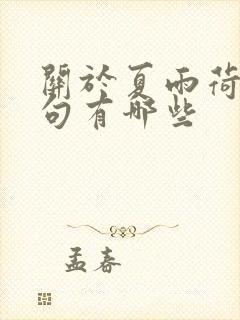 關於夏雨荷
句有哪些
孟春